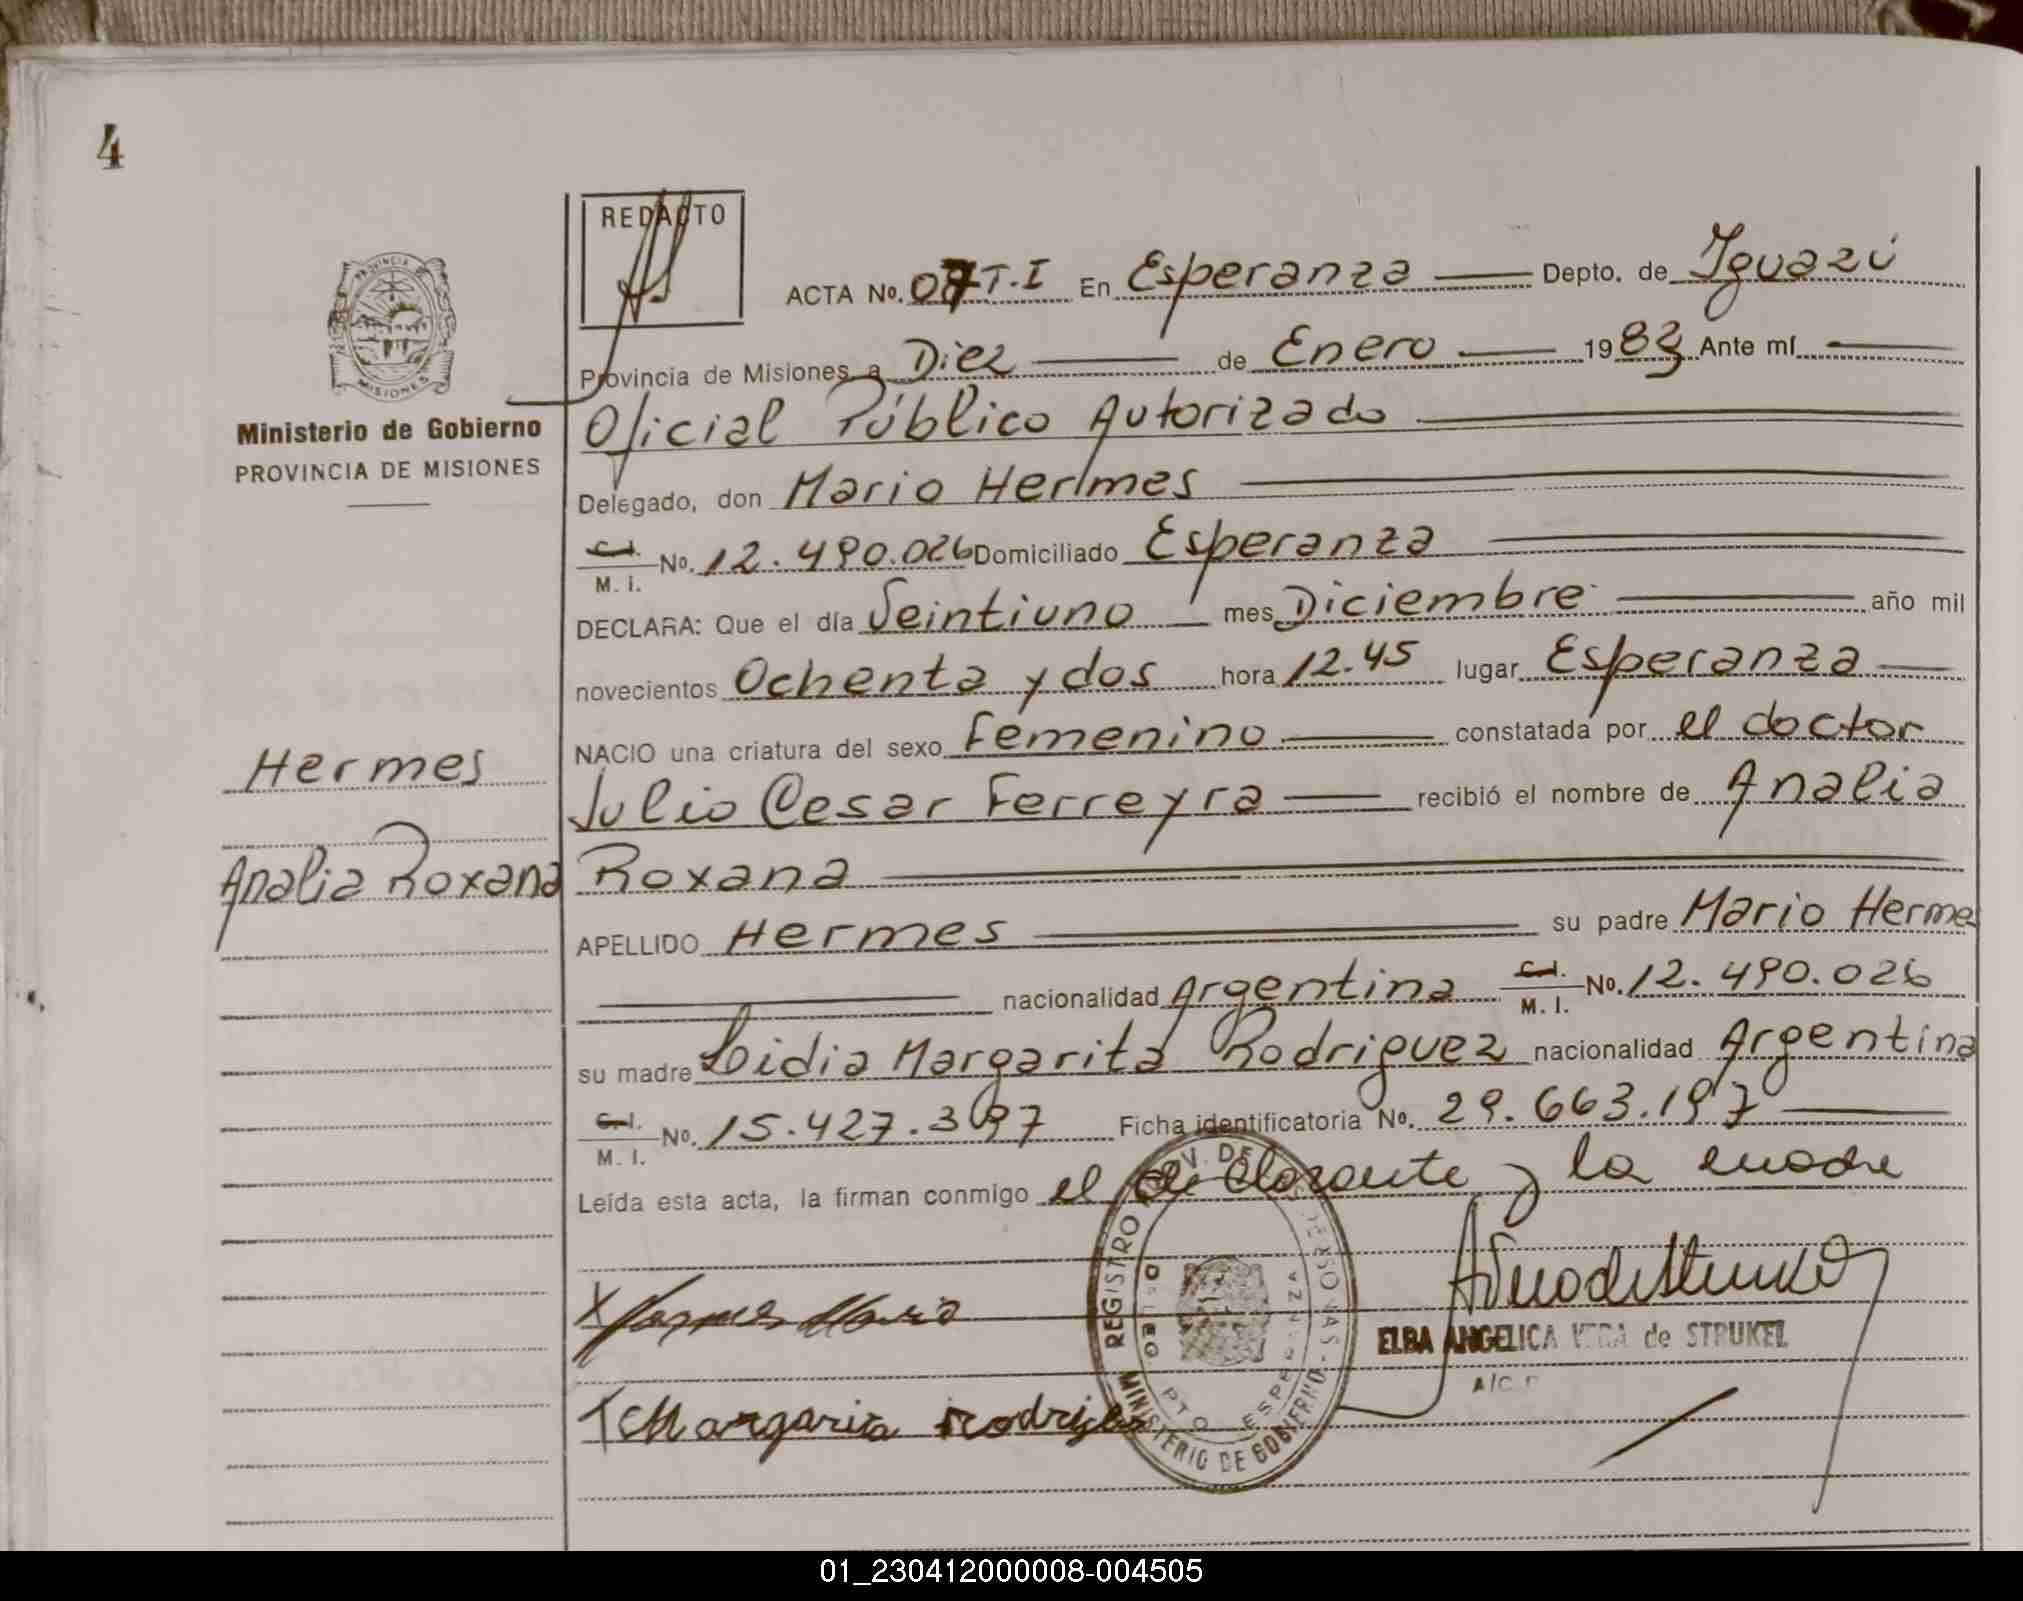 4
REDACTO
ACTA No. 07 T.I En Esperanza Depto. de Iguazú
Provincia de Misiones a Diez de Enero 1983 Ante mí
Oficial Público Autorizado
Ministerio de Gobierno
PROVINCIA DE MISIONES
Delegado, don Mario Hermes
C.I. M. I. No. 12.490.026 Domiciliado Esperanza
DECLARA: Que el día Veintiuno mes Diciembre año mil
novecientos Ochenta y dos hora 12.45 lugar Esperanza
NACIO una criatura del sexo Femenino constatada por el doctor
Hermes
Julio Cesar Ferreyra recibió el nombre de Analia
Analia Roxana
Roxana
APELLIDO Hermes su padre Mario Hermes
nacionalidad Argentina C.I. M. I. No. 12.490.026
su madre Lidia Margarita Rodriguez nacionalidad Argentina
C.I. M. I. No. 15.427.397 Ficha identificatoria No. 29.663.197
Leída esta acta, la firman conmigo el declarante y la madre
REGISTRO PERSONAS
MINISTERIO DE GOBIERNO
Hermes Mario
ELBA ANGELICA VERA de STRUKEL
Margarita rodriguez
01_230412000008-004505